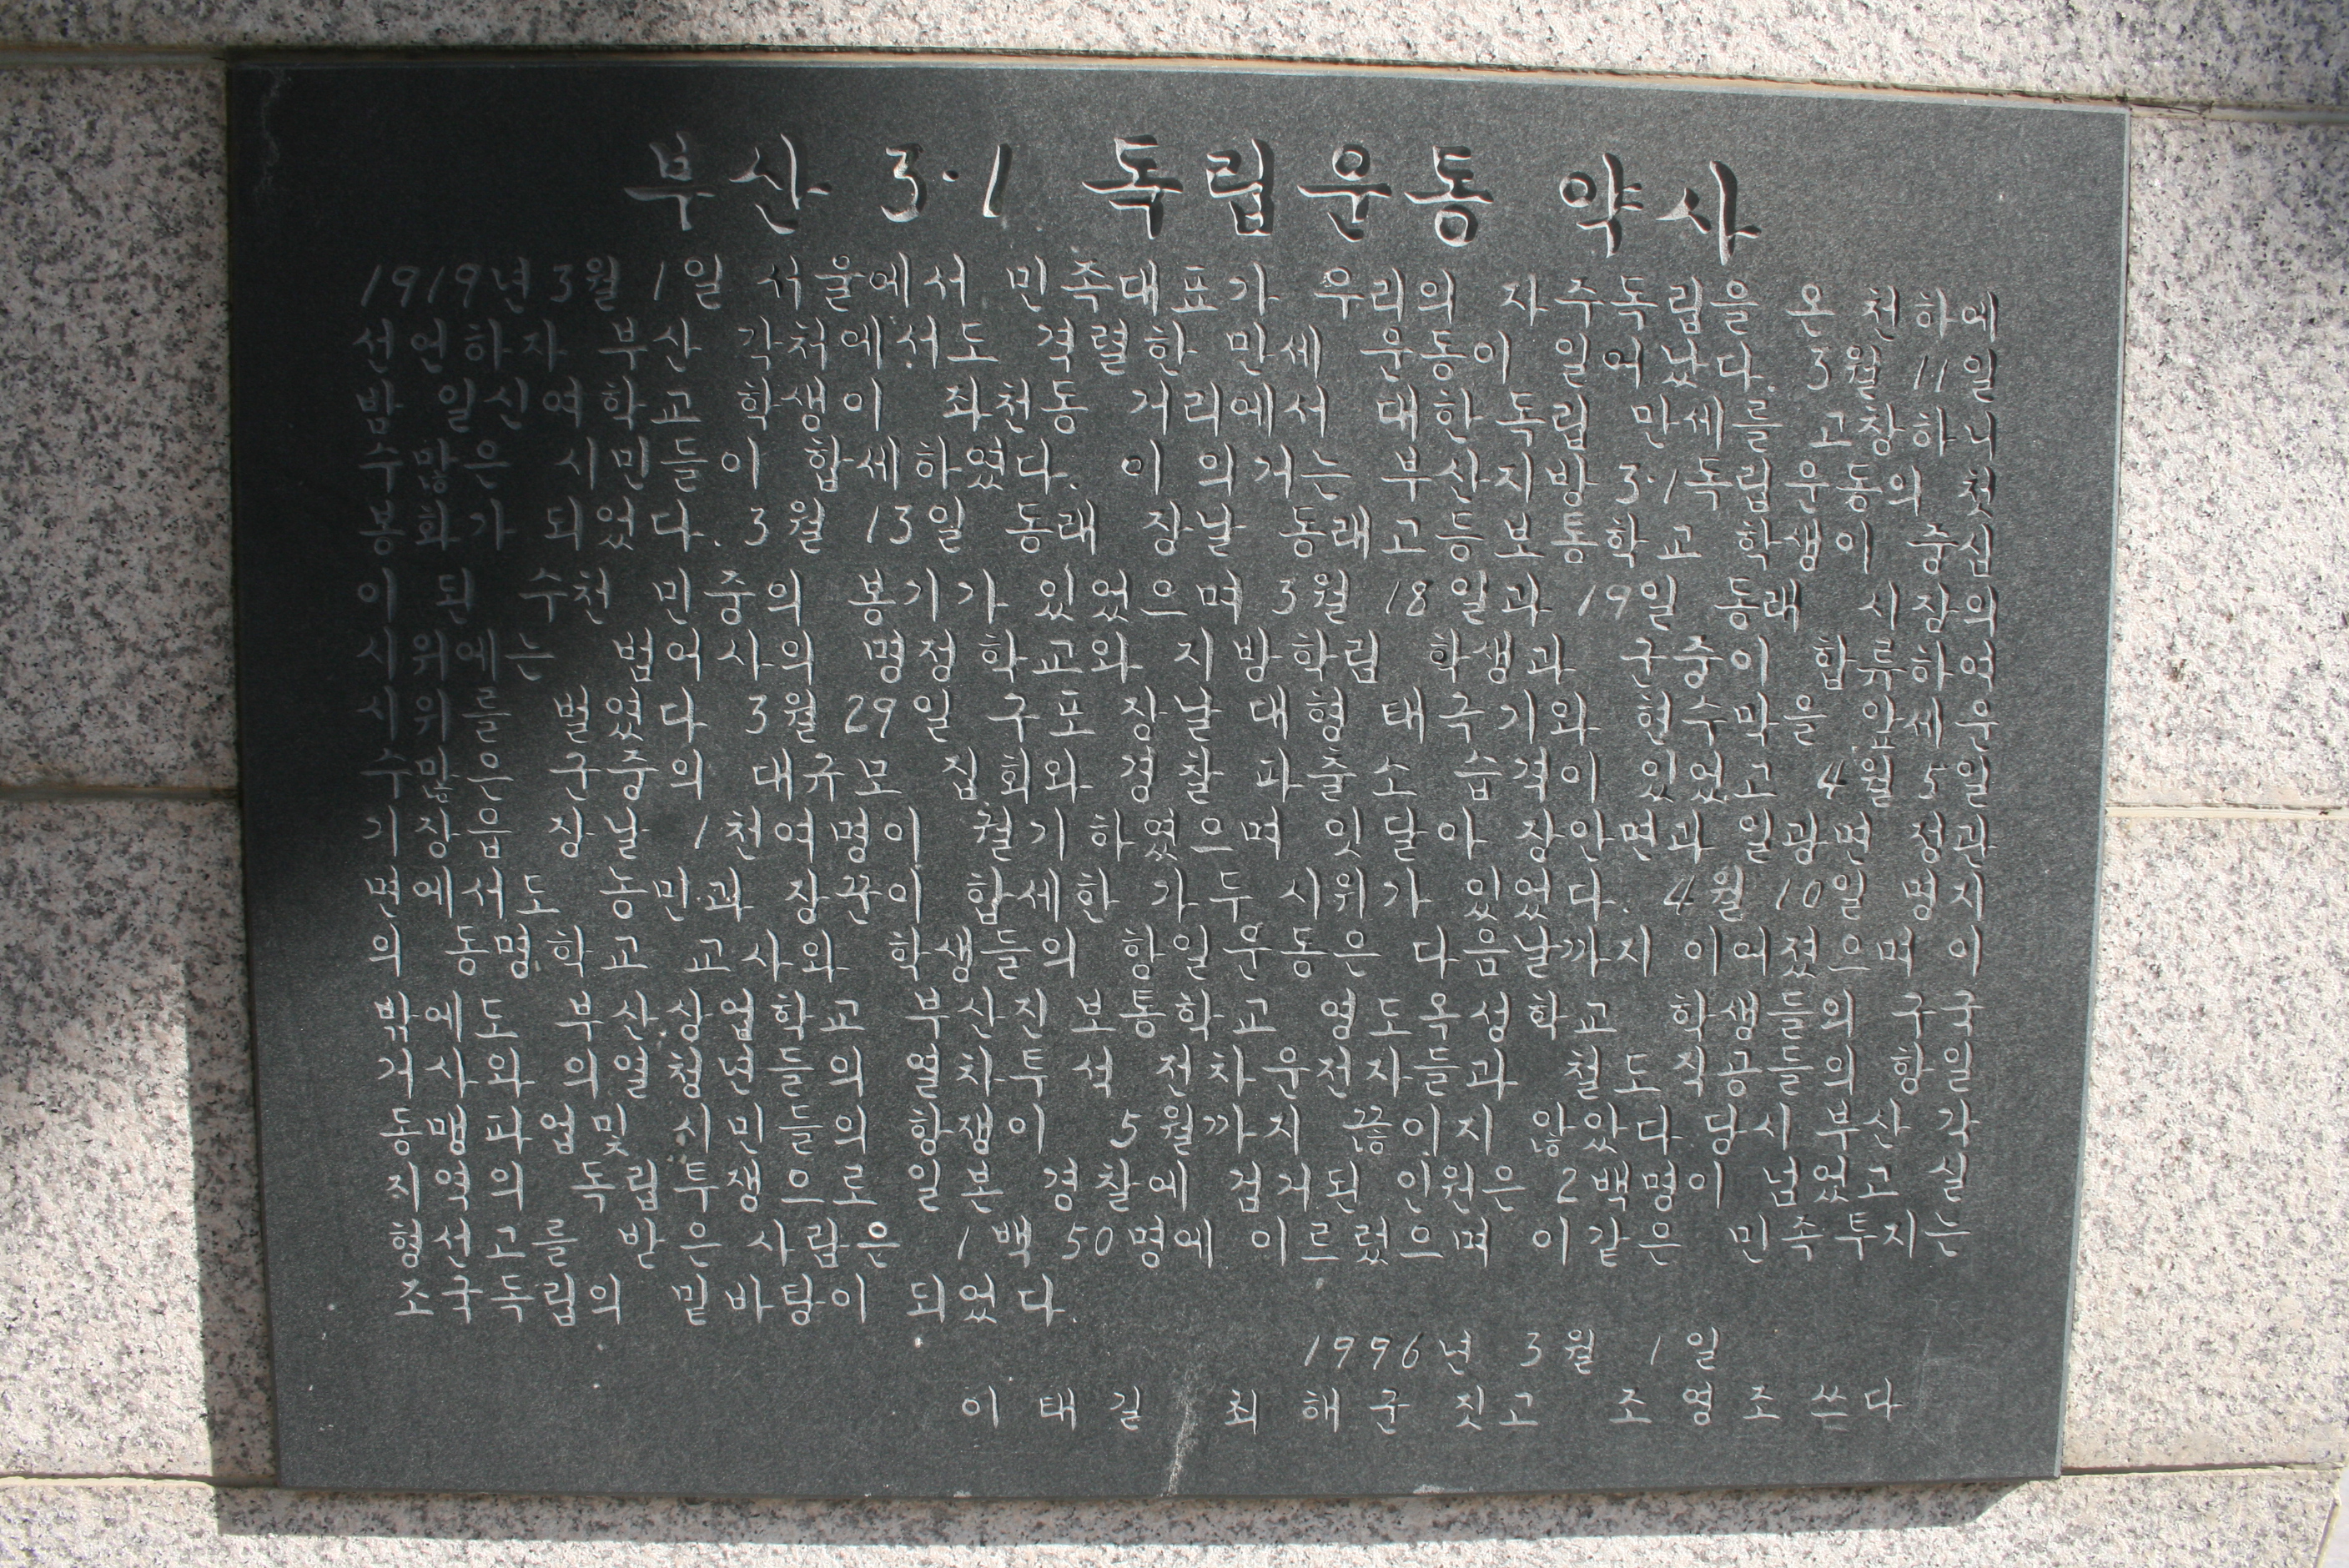 부산 3·1 독립운동 약사
1919년 3월 1일 서울에서 민족대표가 우리의 자주독립을 온 천하에
선언하자 부산 각처에서도 격렬한 만세 운동이 일어났다. 3월 11일
밤 일신여학교 학생이 좌천동 거리에서 대한독립 만세를 고창하니
수많은 시민들이 합세하였다. 이 의거는 부산지방 3·1독립운동의 첫
봉화가 되었다. 3월 13일 동래 장날 동래고등보통학교 학생이 중심
이 된 수천 민중의 봉기가 있었으며 3월 18일과 19일 동래 시장의
시위에는 범어사의 명정학교와 지방학림 학생과 군중이 합류하여
시위를 벌였다 3월 29일 구포 장날 대형 태극기와 현수막을 앞세운
수많은 군중의 대규모 집회와 경찰 파출소 습격이 있었고 4월 5일
기장읍 장날 1천여명이 궐기하였으며 잇달아 장안면과 일광면 정관
면에서도 동민과 장꾼이 합세한 가두시위가 있었다. 4월 10일 명지
의 동명학교 교사와 학생들의 항일운동은 다음날까지 이어졌으며 이
밖에도 부산상업학교 부산진 보통학교 영도옥성학교 학생들의 구국
거사와 의열청년들의 열차투석 전차운전자들과 철도직공들의 항일
동맹파업및 시민들의 항쟁이 5월까지 끊이지 않았다 당시 부산 각
지역의 독립투쟁으로 일본 경찰에 검거된 인원은 2백명이 넘었고 실
형선고를 받은 사람은 1백 50명에 이르렀으며 이같은 민족투지는
조국독립의 밑바탕이 되었다.
1996년 3월 1일
이태길 최해군 짓고 조영조 쓰다